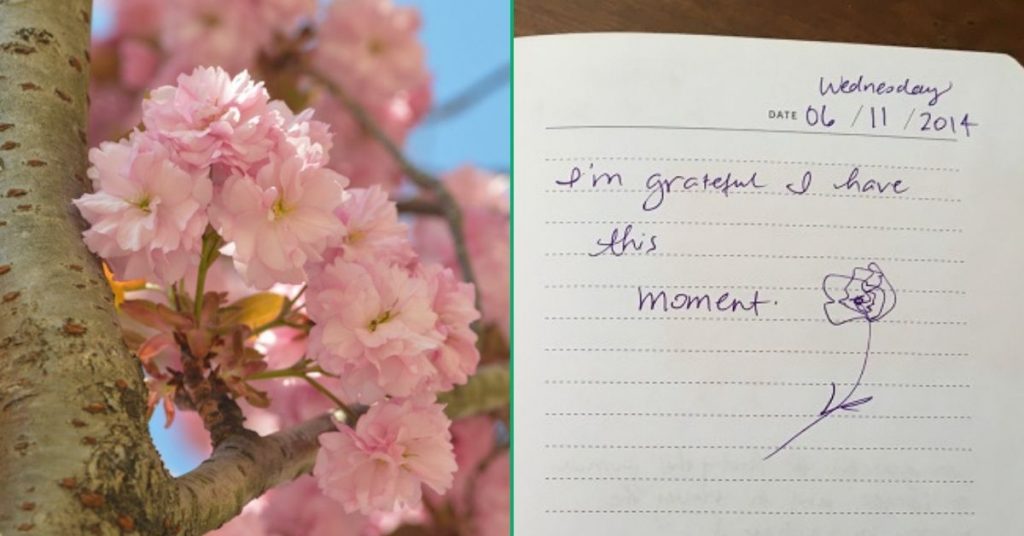 Wednesday
DATE 06 / 11 / 2014
I'm grateful I have
this
moment.